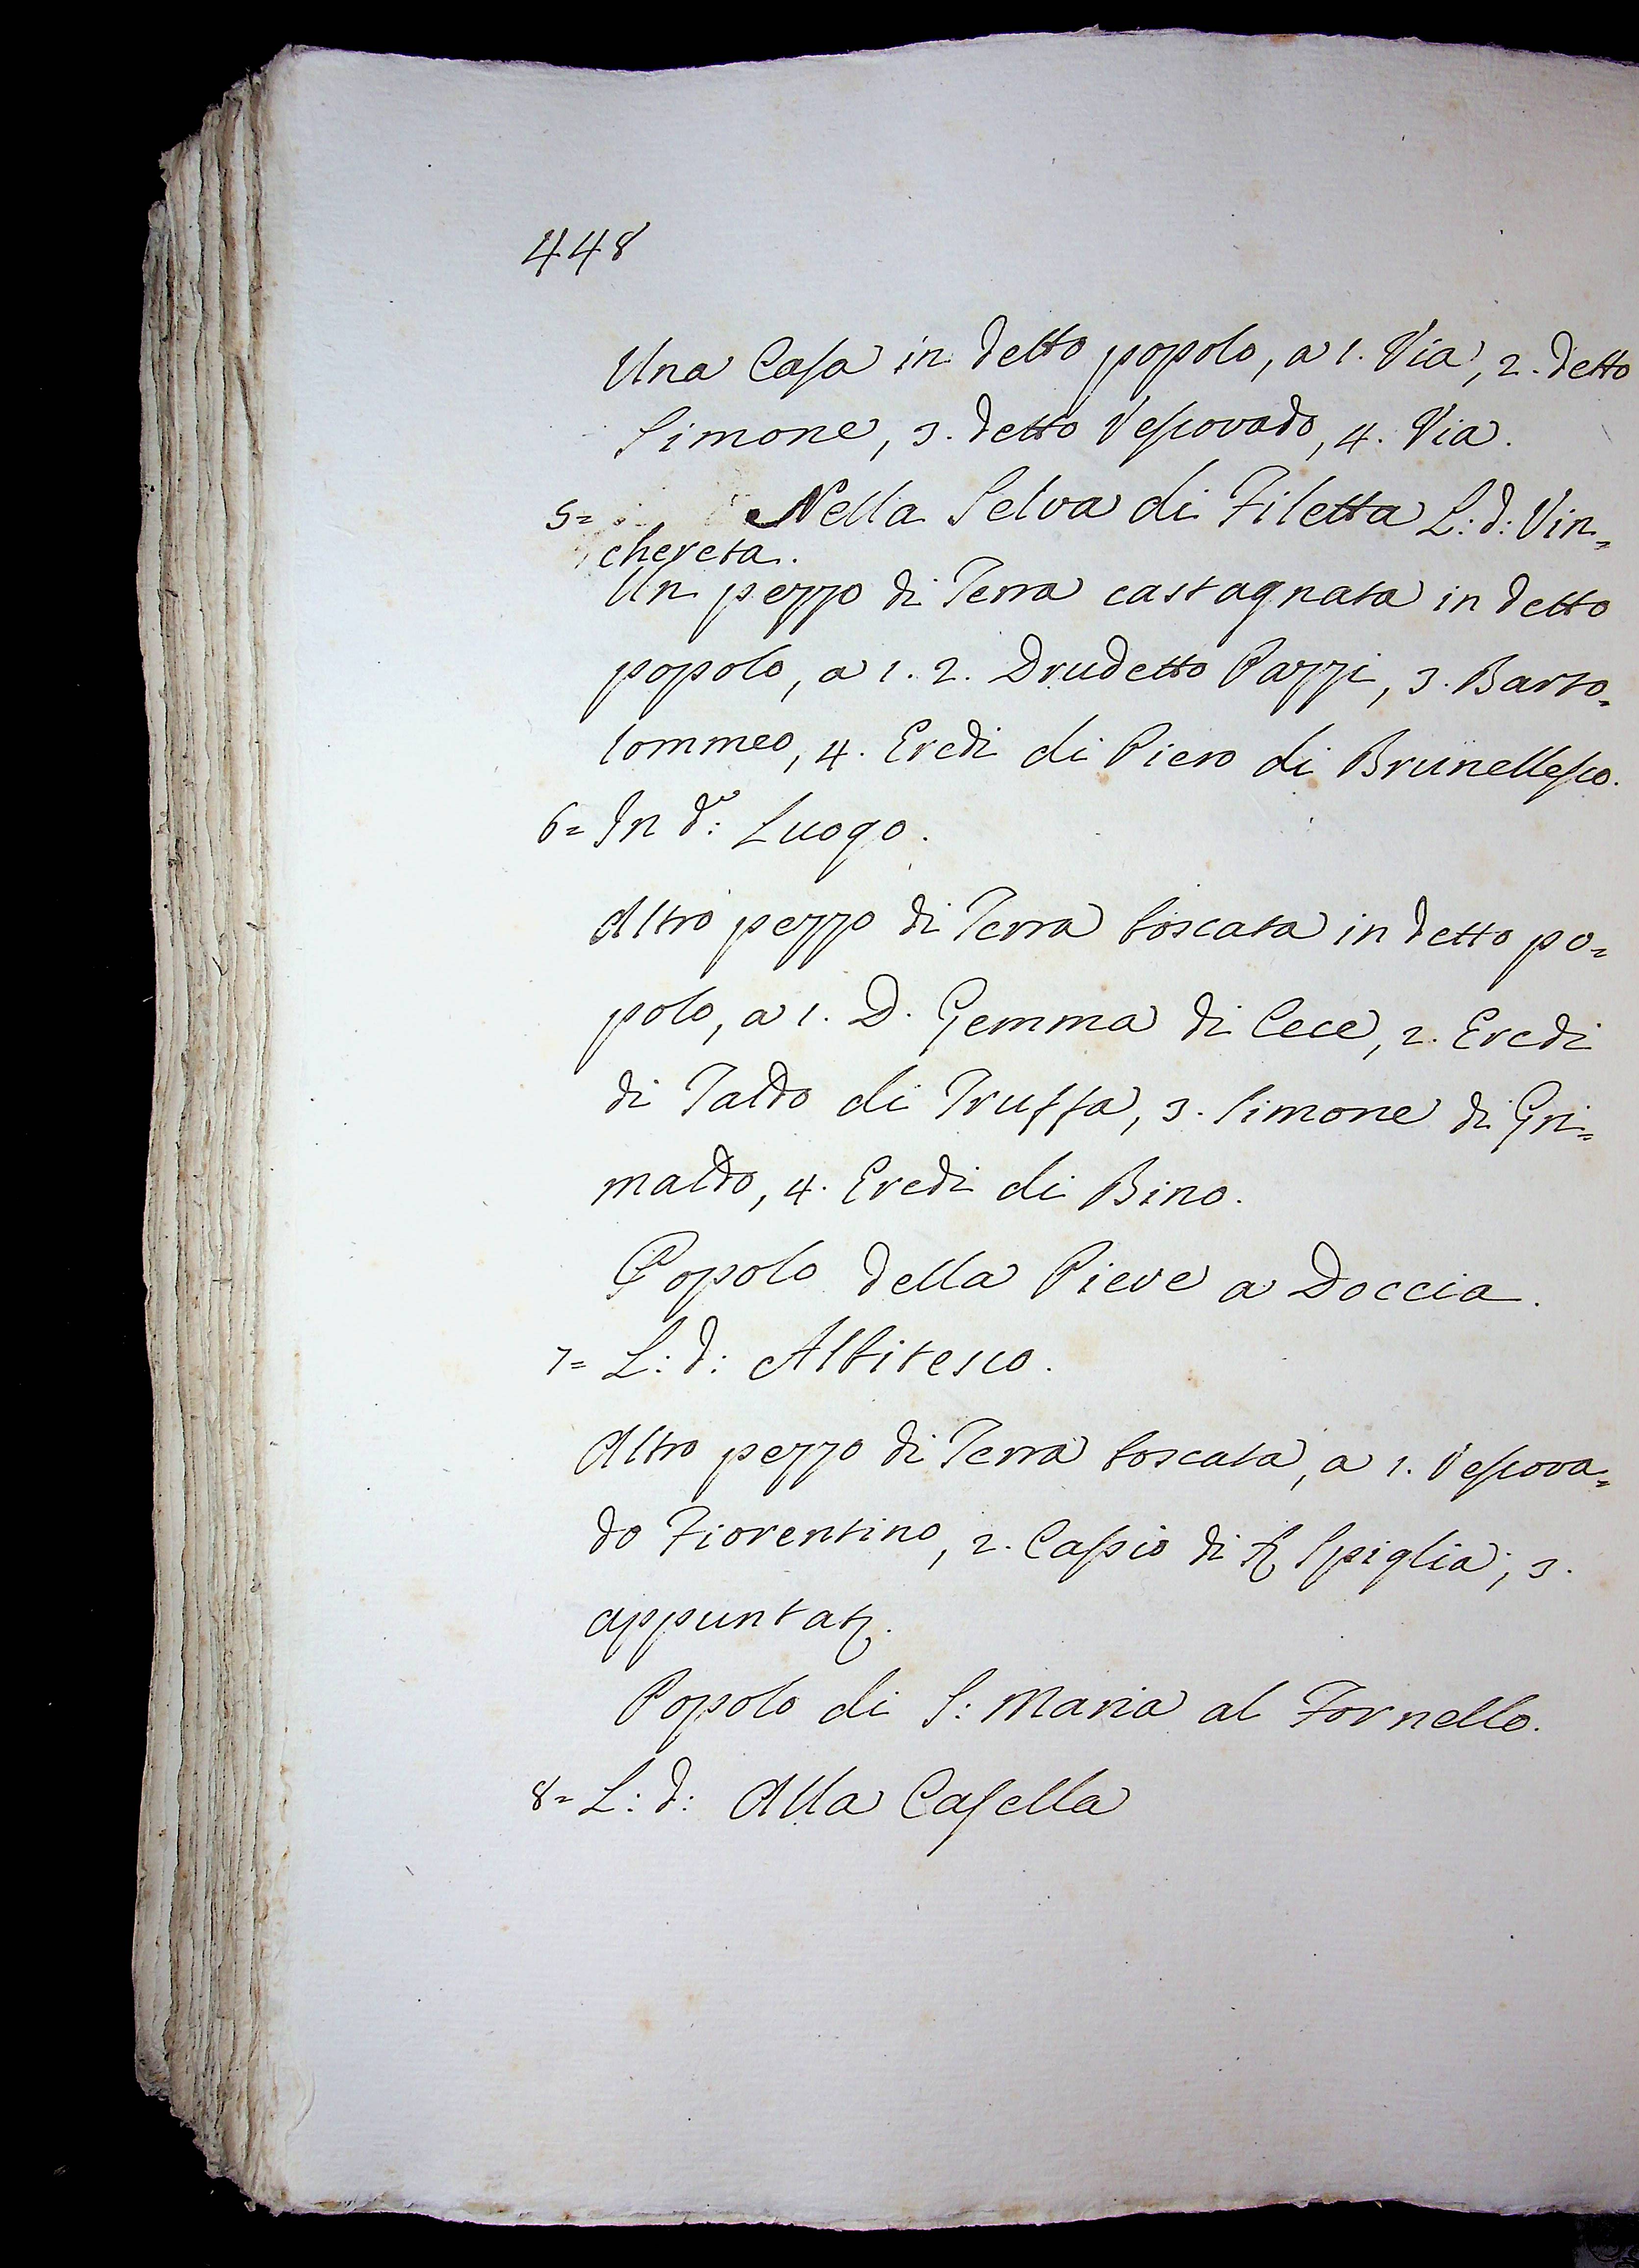 448
Una Casa in detto popolo, a 1. Via, 2. detto
Simone, 3. detto Vescovado, 4. Via.
5= Nella Selva di Filetta L: d: Vin=
chereta.
Un pezzo di Terra castagnata in detto
popolo, a 1. 2. Drudetto Pazzi, 3. Barto=
lommeo, 4. Eredi di Piero di Brunellesco.
6= In d.o: Luogo.
Altro pezzo di Terra boscata in detto po=
polo, a 1. D. Gemma di Cece, 2. Eredi
di Taldo di Truffa, 3. Simone di Gri=
maldo, 4. Eredi di Bino.
Popolo della Pieve a Doccia.
7= L: d: Albitesco.
Altro pezzo di Terra boscata, a 1. Vescova=
do Fiorentino, 2. Casino di Spiglia; 3.
Popolo di S: Maria al Fornello.
8= L: d: Alla Casella